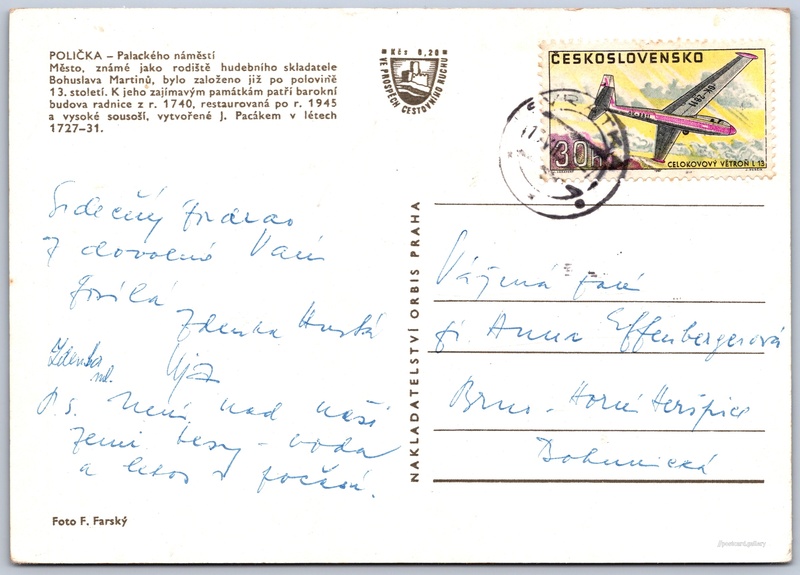 POLIČKA – Palackého náměstí
Město, známé jako rodiště hudebního skladatele
Bohuslava Martinů, bylo založeno již po polovině
13. století. K jeho zajímavým památkám patří barokní
budova radnice z r. 1740, restaurovaná po r. 1945
a vysoké sousoší, vytvořené J. Pacákem v létech
1727–31.
Kčs 0,20
VE PROSPĚCH CESTOVNÍHO RUCHU
ČESKOSLOVENSKO
30h
CELOKOVOVÝ VĚTROŇ L 13
Srdečný pozdrav
z dovolené Vám
posílá
Zdenka Hruská
Zdenka
ml.
P.s. Není nad naši
zemi krásy – voda
a letos i počasí.
NAKLADATELSTVÍ ORBIS PRAHA
Vážená paní
pí. Anna Effenbergerová
Brno – Horní Heršpice
Bohunická
Foto F. Farský
//postcard.gallery